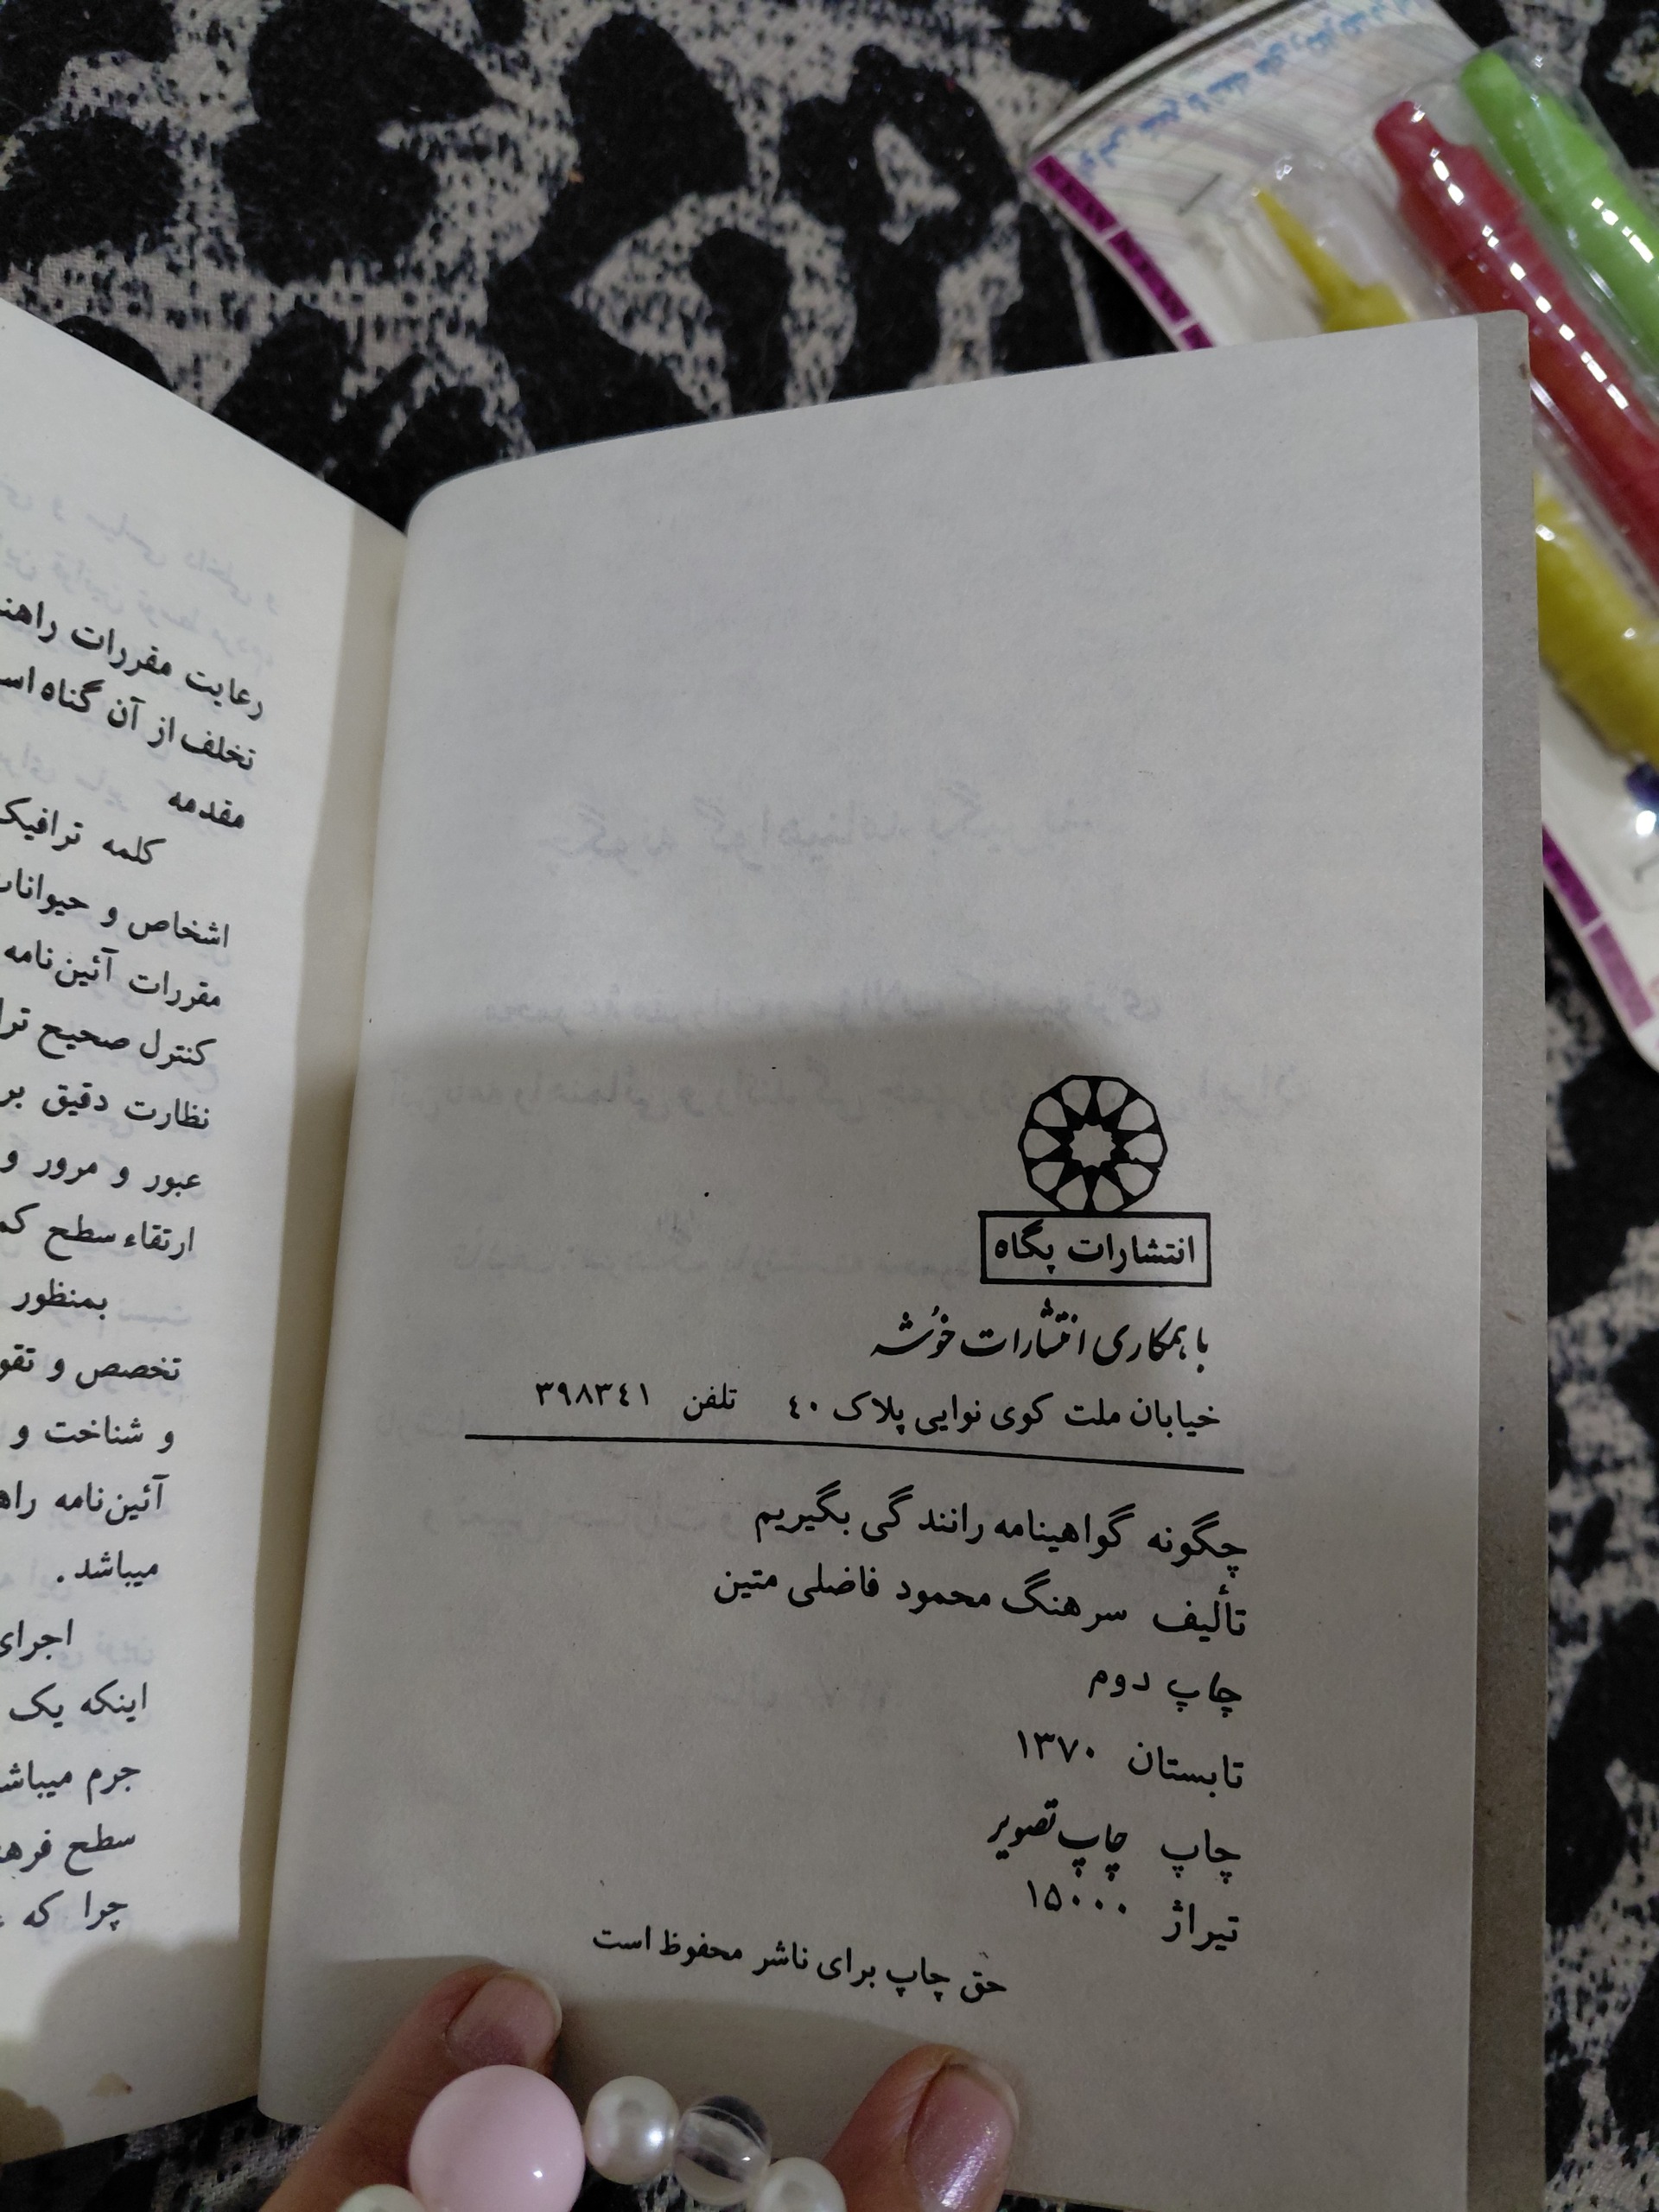 انتشارات پگاه
با همکاری انتشارات خوشه
خیابان ملت کوی نوایی پلاک ۴۰ تلفن ۳۹۸۳۴۱
چگونه گواهینامه رانندگی بگیریم
تألیف سرهنگ محمود فاضلی متین
چاپ دوم
تابستان ۱۳۷۰
چاپ چاپ تصویر
تیراژ ۱۵۰۰۰
حق چاپ برای ناشر محفوظ است
رعایت مقررات
تخلف از آن گناه
مقدمه
کلمه ترافیک
اشخاص و حیوانات
مقررات آئین‌نامه
کنترل صحیح
نظارت دقیق بر
عبور و مرور و
ارتقاء سطح
بمنظور
تخصص و
و شناخت و
آئین‌نامه
میباشد.
اجرای
اینکه یک
جرم
سطح
چرا که